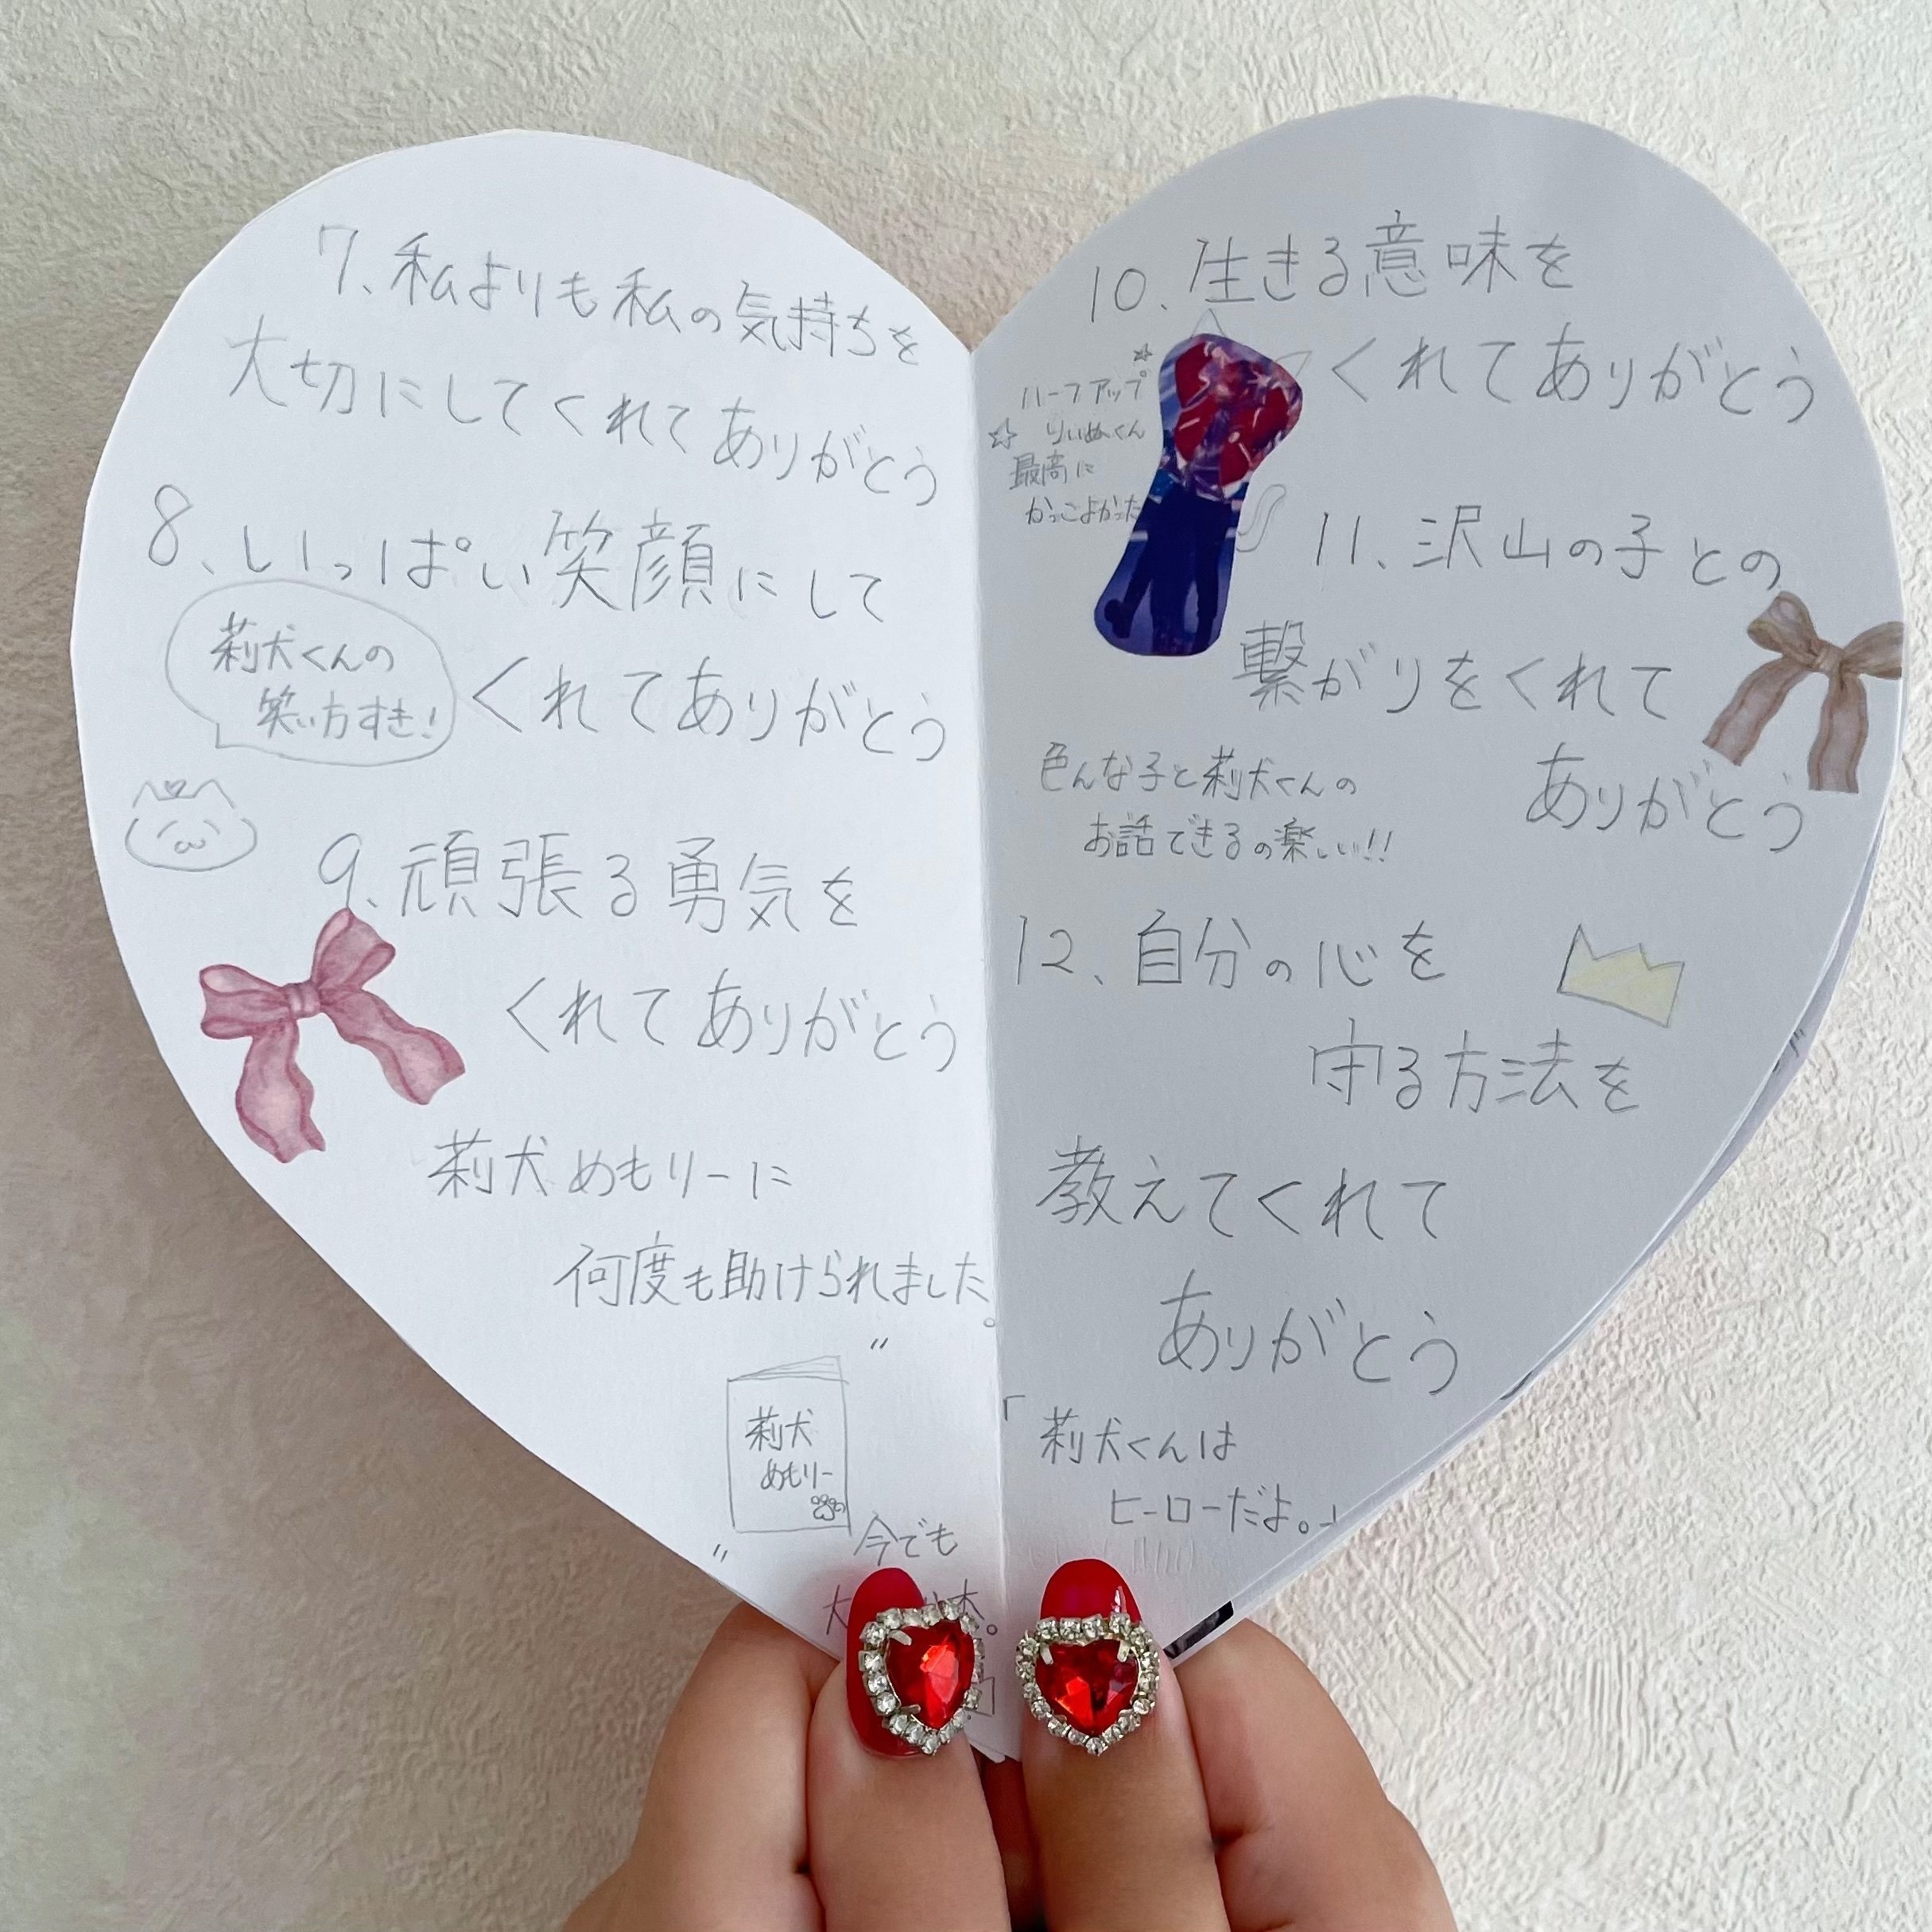 7、私よりも私の気持ちを
大切にしてくれてありがとう
8、いっぱい笑顔にして
くれてありがとう
莉犬くんの
笑い方すき!
9、頑張る勇気を
くれてありがとう
莉犬めもりーに
何度も助けられました。
莉犬
めもりー
今でも
10、生きる意味を
くれてありがとう
ハーフアップ
りいぬくん
最高に
かっこよかった
11、沢山の子との
繋がりをくれて
ありがとう
色んな子と莉犬くんの
お話できるの楽しい!!
12、自分の心を
守る方法を
教えてくれて
ありがとう
「莉犬くんは
ヒーローだよ。」